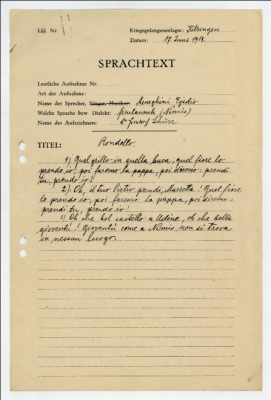 Lfd. Nr.
Kriegsgefangenenlager:
Datum: 17. Juni 1918.
SPRACHTEXT
Lautliche Aufnahme Nr.
Art der Aufnahme:
Name des Sprecher, Sänger, Musiker: Meneghini Egidio
Welche Sprache bzw. Dialekt: friulanisch (Nimis)
Name des Aufnehmers: Dr Friedrich Schürr
TITEL: Rondello.
1) Quel grillo in quella buca, quel fiore lo
prendo io, poi faremo la pappa, poi diremo: prendi
tu, prendo io!
2) Oh, il tuo Pietro prendi, Marietta! Quel fiore
lo prendo io, poi faremo la pappa, poi diremo:
prendi tu, prendo io!
3) Oh che bel castello a Udine, oh che bella
gioventù! Gioventù come a Nimis non si trova
in nessun luogo.